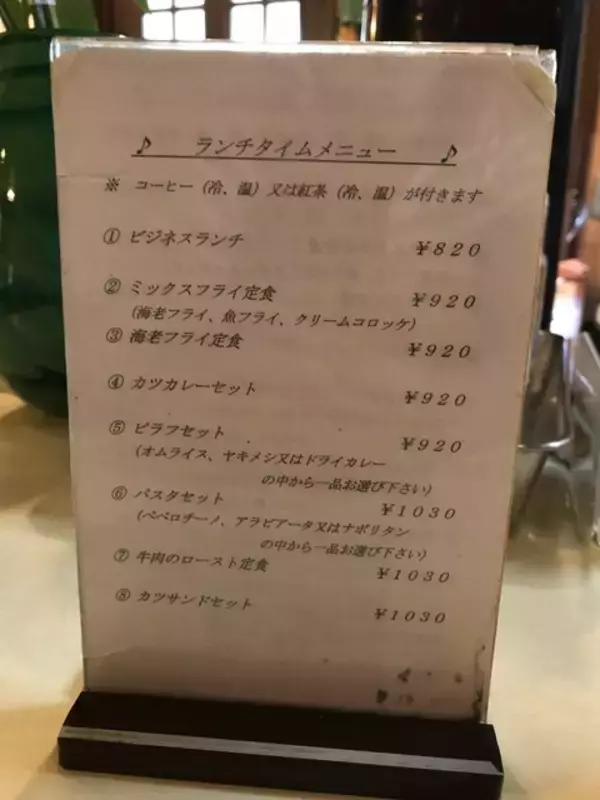 ♪ ランチタイムメニュー ♪
※ コーヒー（冷、温）又は紅茶（冷、温）が付きます
① ビジネスランチ ￥820
② ミックスフライ定食 ￥920
（海老フライ、魚フライ、クリームコロッケ）
③ 海老フライ定食 ￥920
④ カツカレーセット ￥920
⑤ ピラフセット ￥920
（オムライス、ヤキメシ又はドライカレー
の中から一品お選び下さい）
⑥ パスタセット ￥1030
（ペペロチーノ、アラビアータ又はナポリタン
の中から一品お選び下さい）
⑦ 牛肉のロースト定食 ￥1030
⑧ カツサンドセット ￥1030